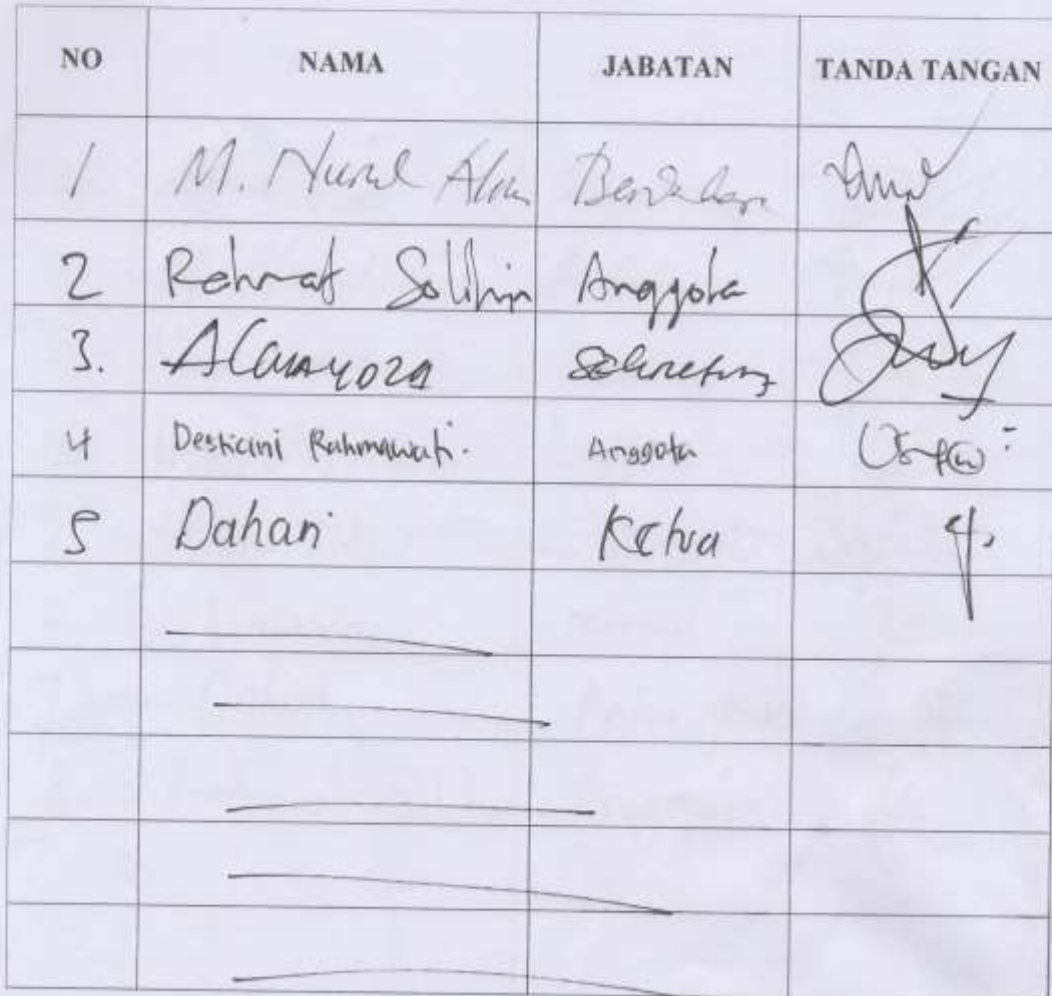 NO NAMA JABATAN TANDA TANGAN
1 M. Nurul Alim Bendahara
2 Rahmat Solihin Anggota
3. Sekretaris
4 Destriani Rahmawati. Anggota
5 Dahari Ketua